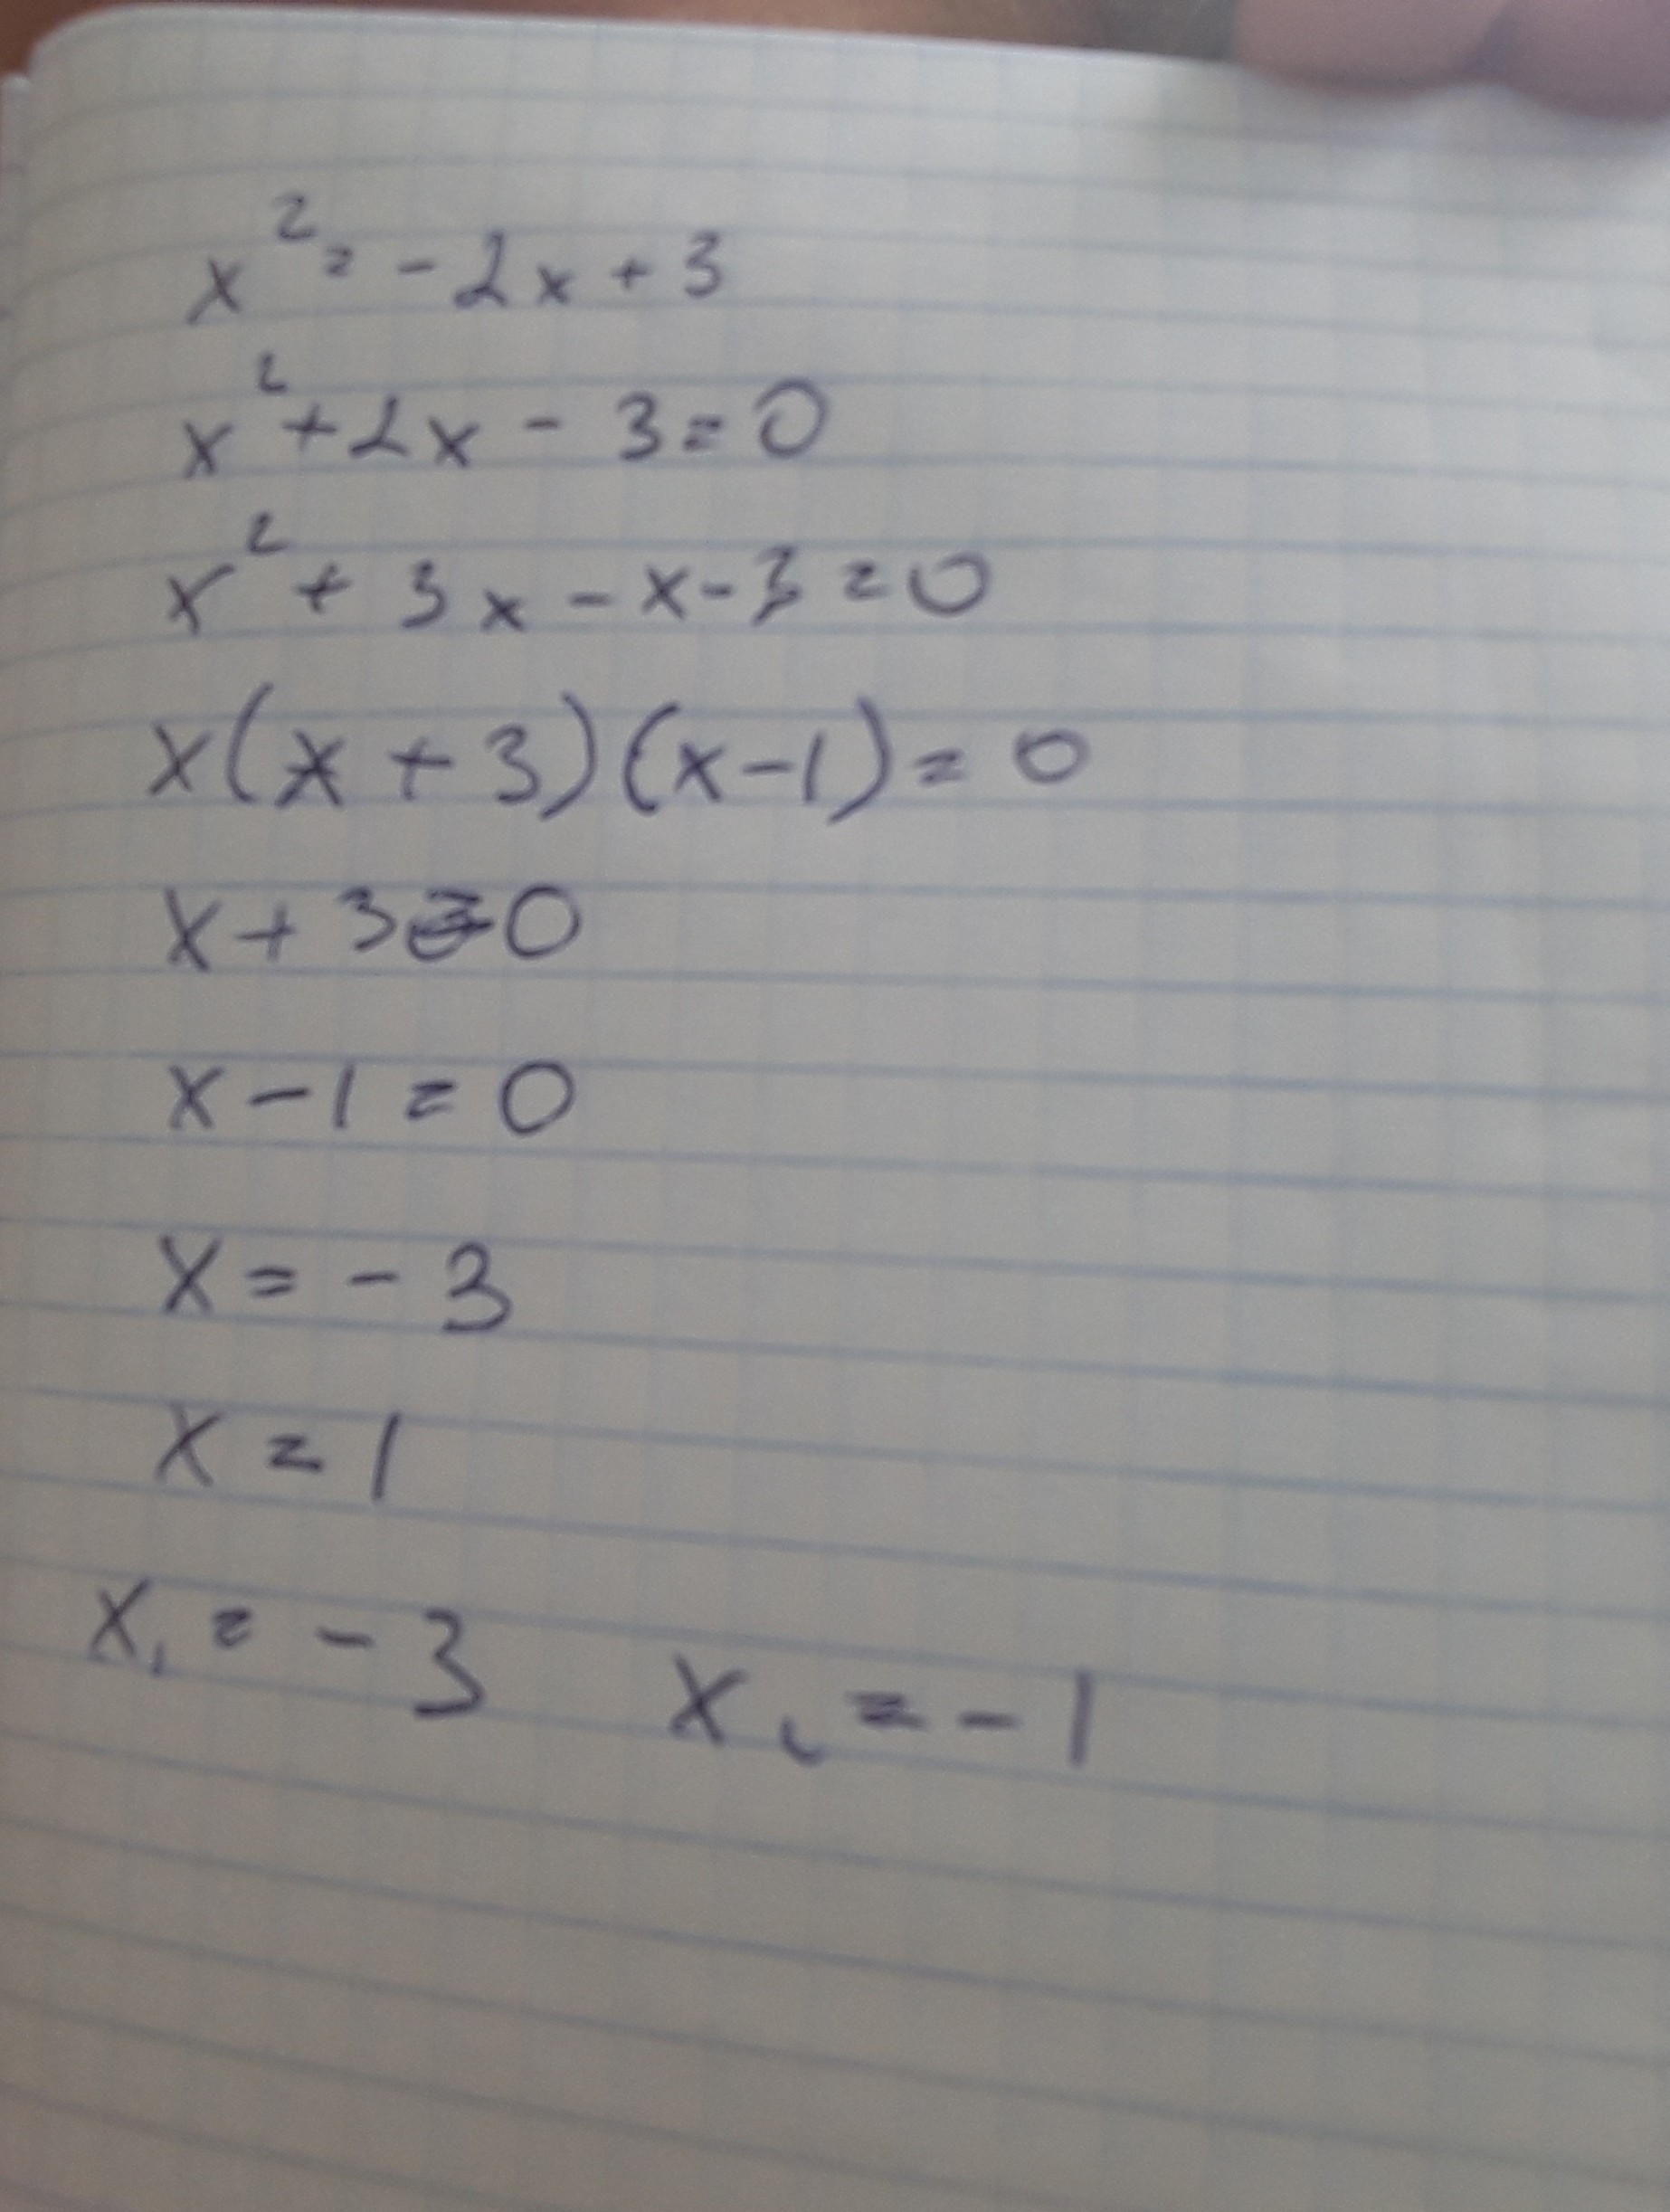 x² = - 2x + 3
x² + 2x - 3 = 0
x² + 3x - x - 3 = 0
x(x + 3)(x - 1) = 0
x + 3 = 0
x - 1 = 0
x = - 3
x = 1
x₁ = - 3 x₂ = - 1